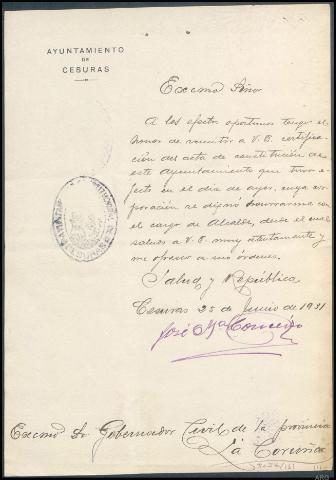 AYUNTAMIENTO
DE
CESURAS
Excmo Señor
A los efectos oportunos tengo el
honor de remitir a V. E. certifica-
ción del acta de constitución de
este Ayuntamiento que tuvo e-
fecto en el día de ayer, cuya cor-
poración se dignó honrarme con
el cargo de Alcalde, desde el cual
saluda a V. E. muy atentamente y
me ofrezco a sus órdenes.
Salud y República
Cesuras 25 de Junio de 1931
José Mª
Excmo Sr Gobernador Civil de la provincia
La Coruña